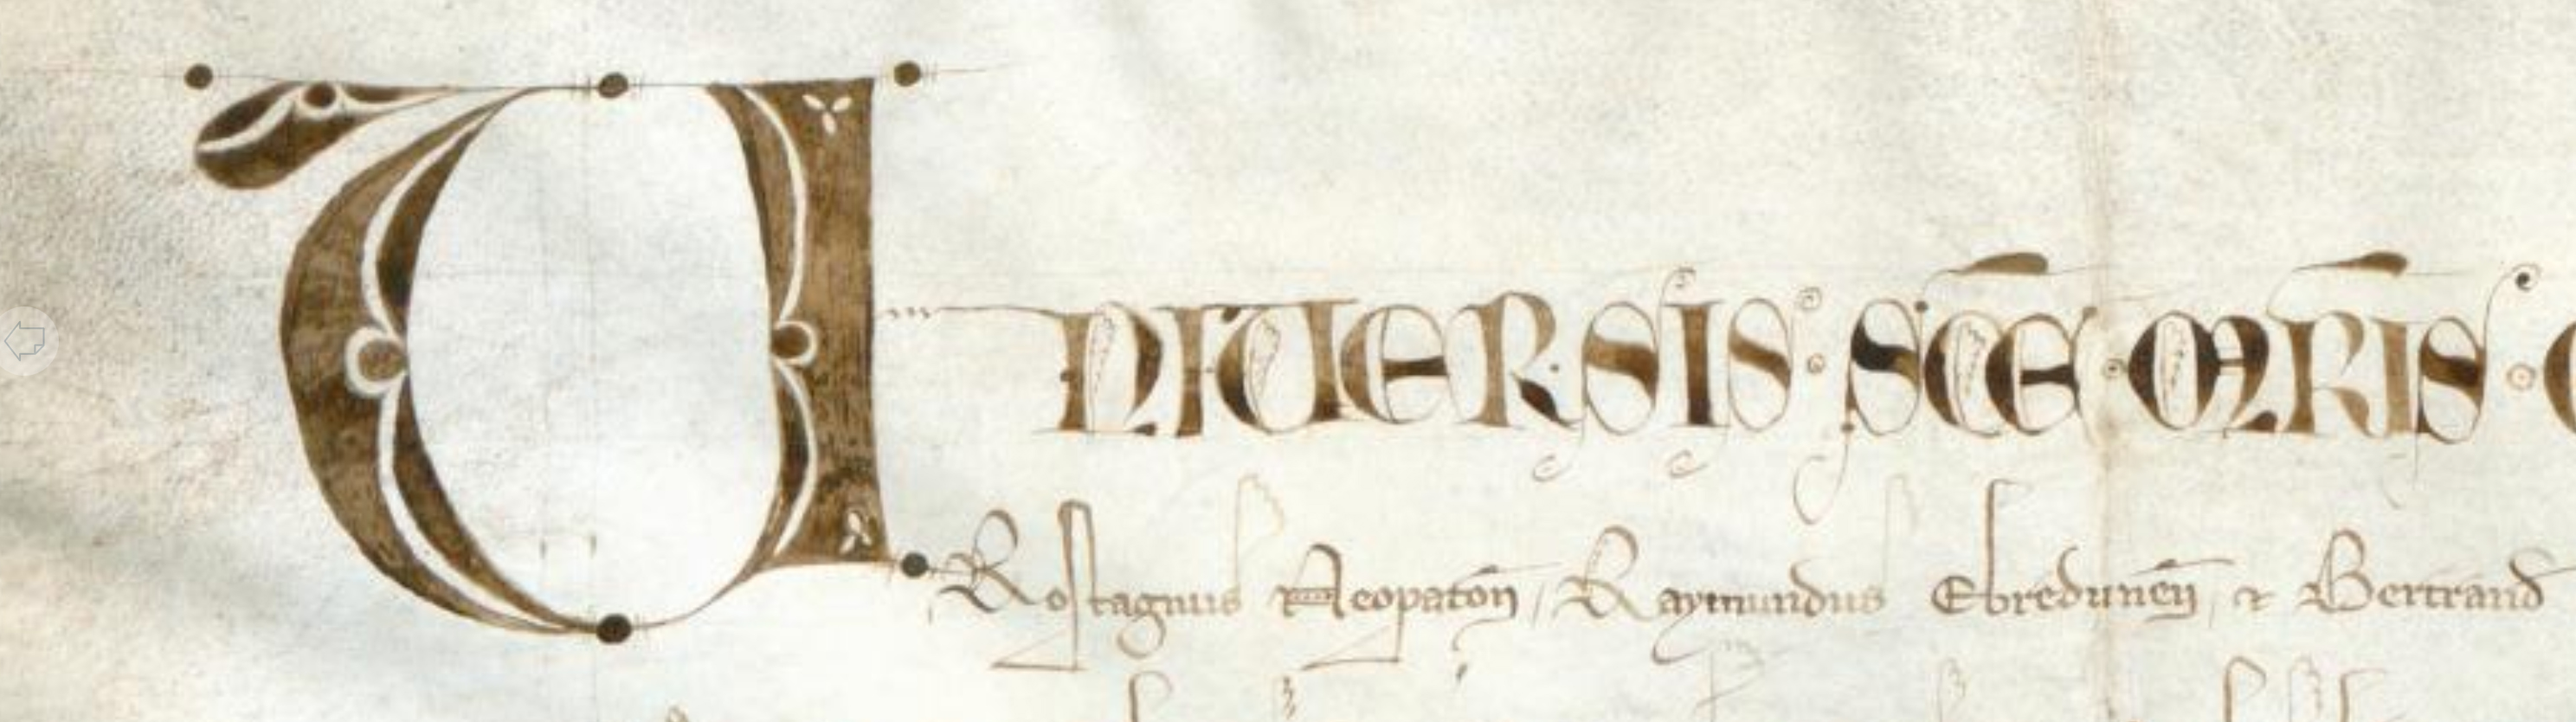 UNIVERSIS · SC̄E · MR̄IS ·
Rostagnus Neopaton̄ / Raymundus Ebredunen̄ / ⁊ Bertrand̄